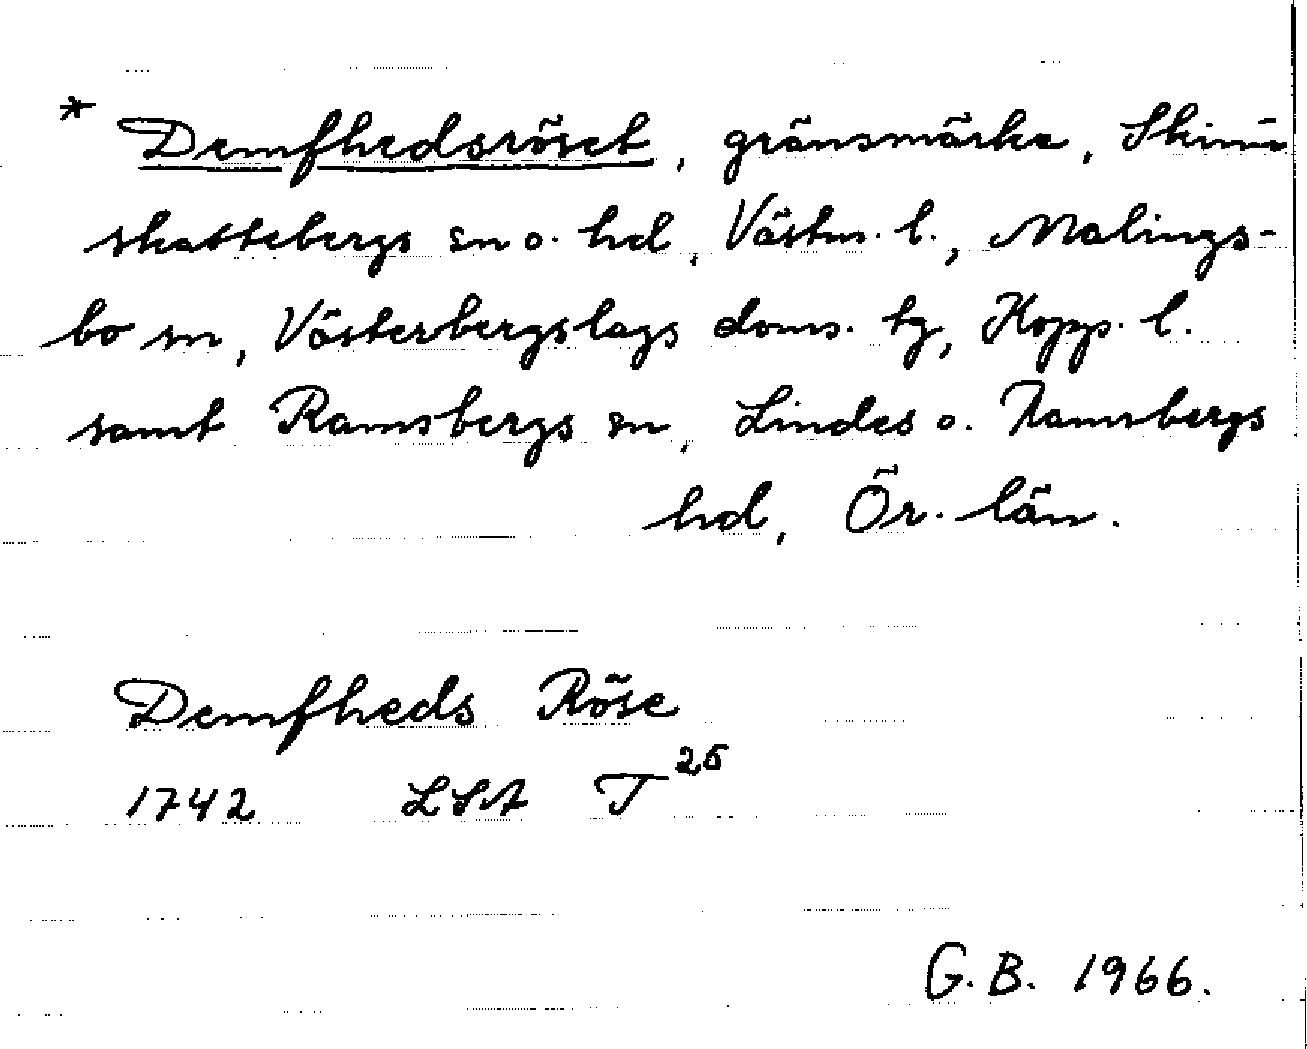 * Demfhedsröset, gränsmärke, Skinn-
skattebergs sn o. hd, Västm. l., Malings-
bo sn, Västerbergslags doms. tg, Kopp. l.
samt Ramsbergs sn, Lindes o. Ramsbergs
hd, Ör. län.
Demfheds Röse
1742 LSA T 26
G.B. 1966.